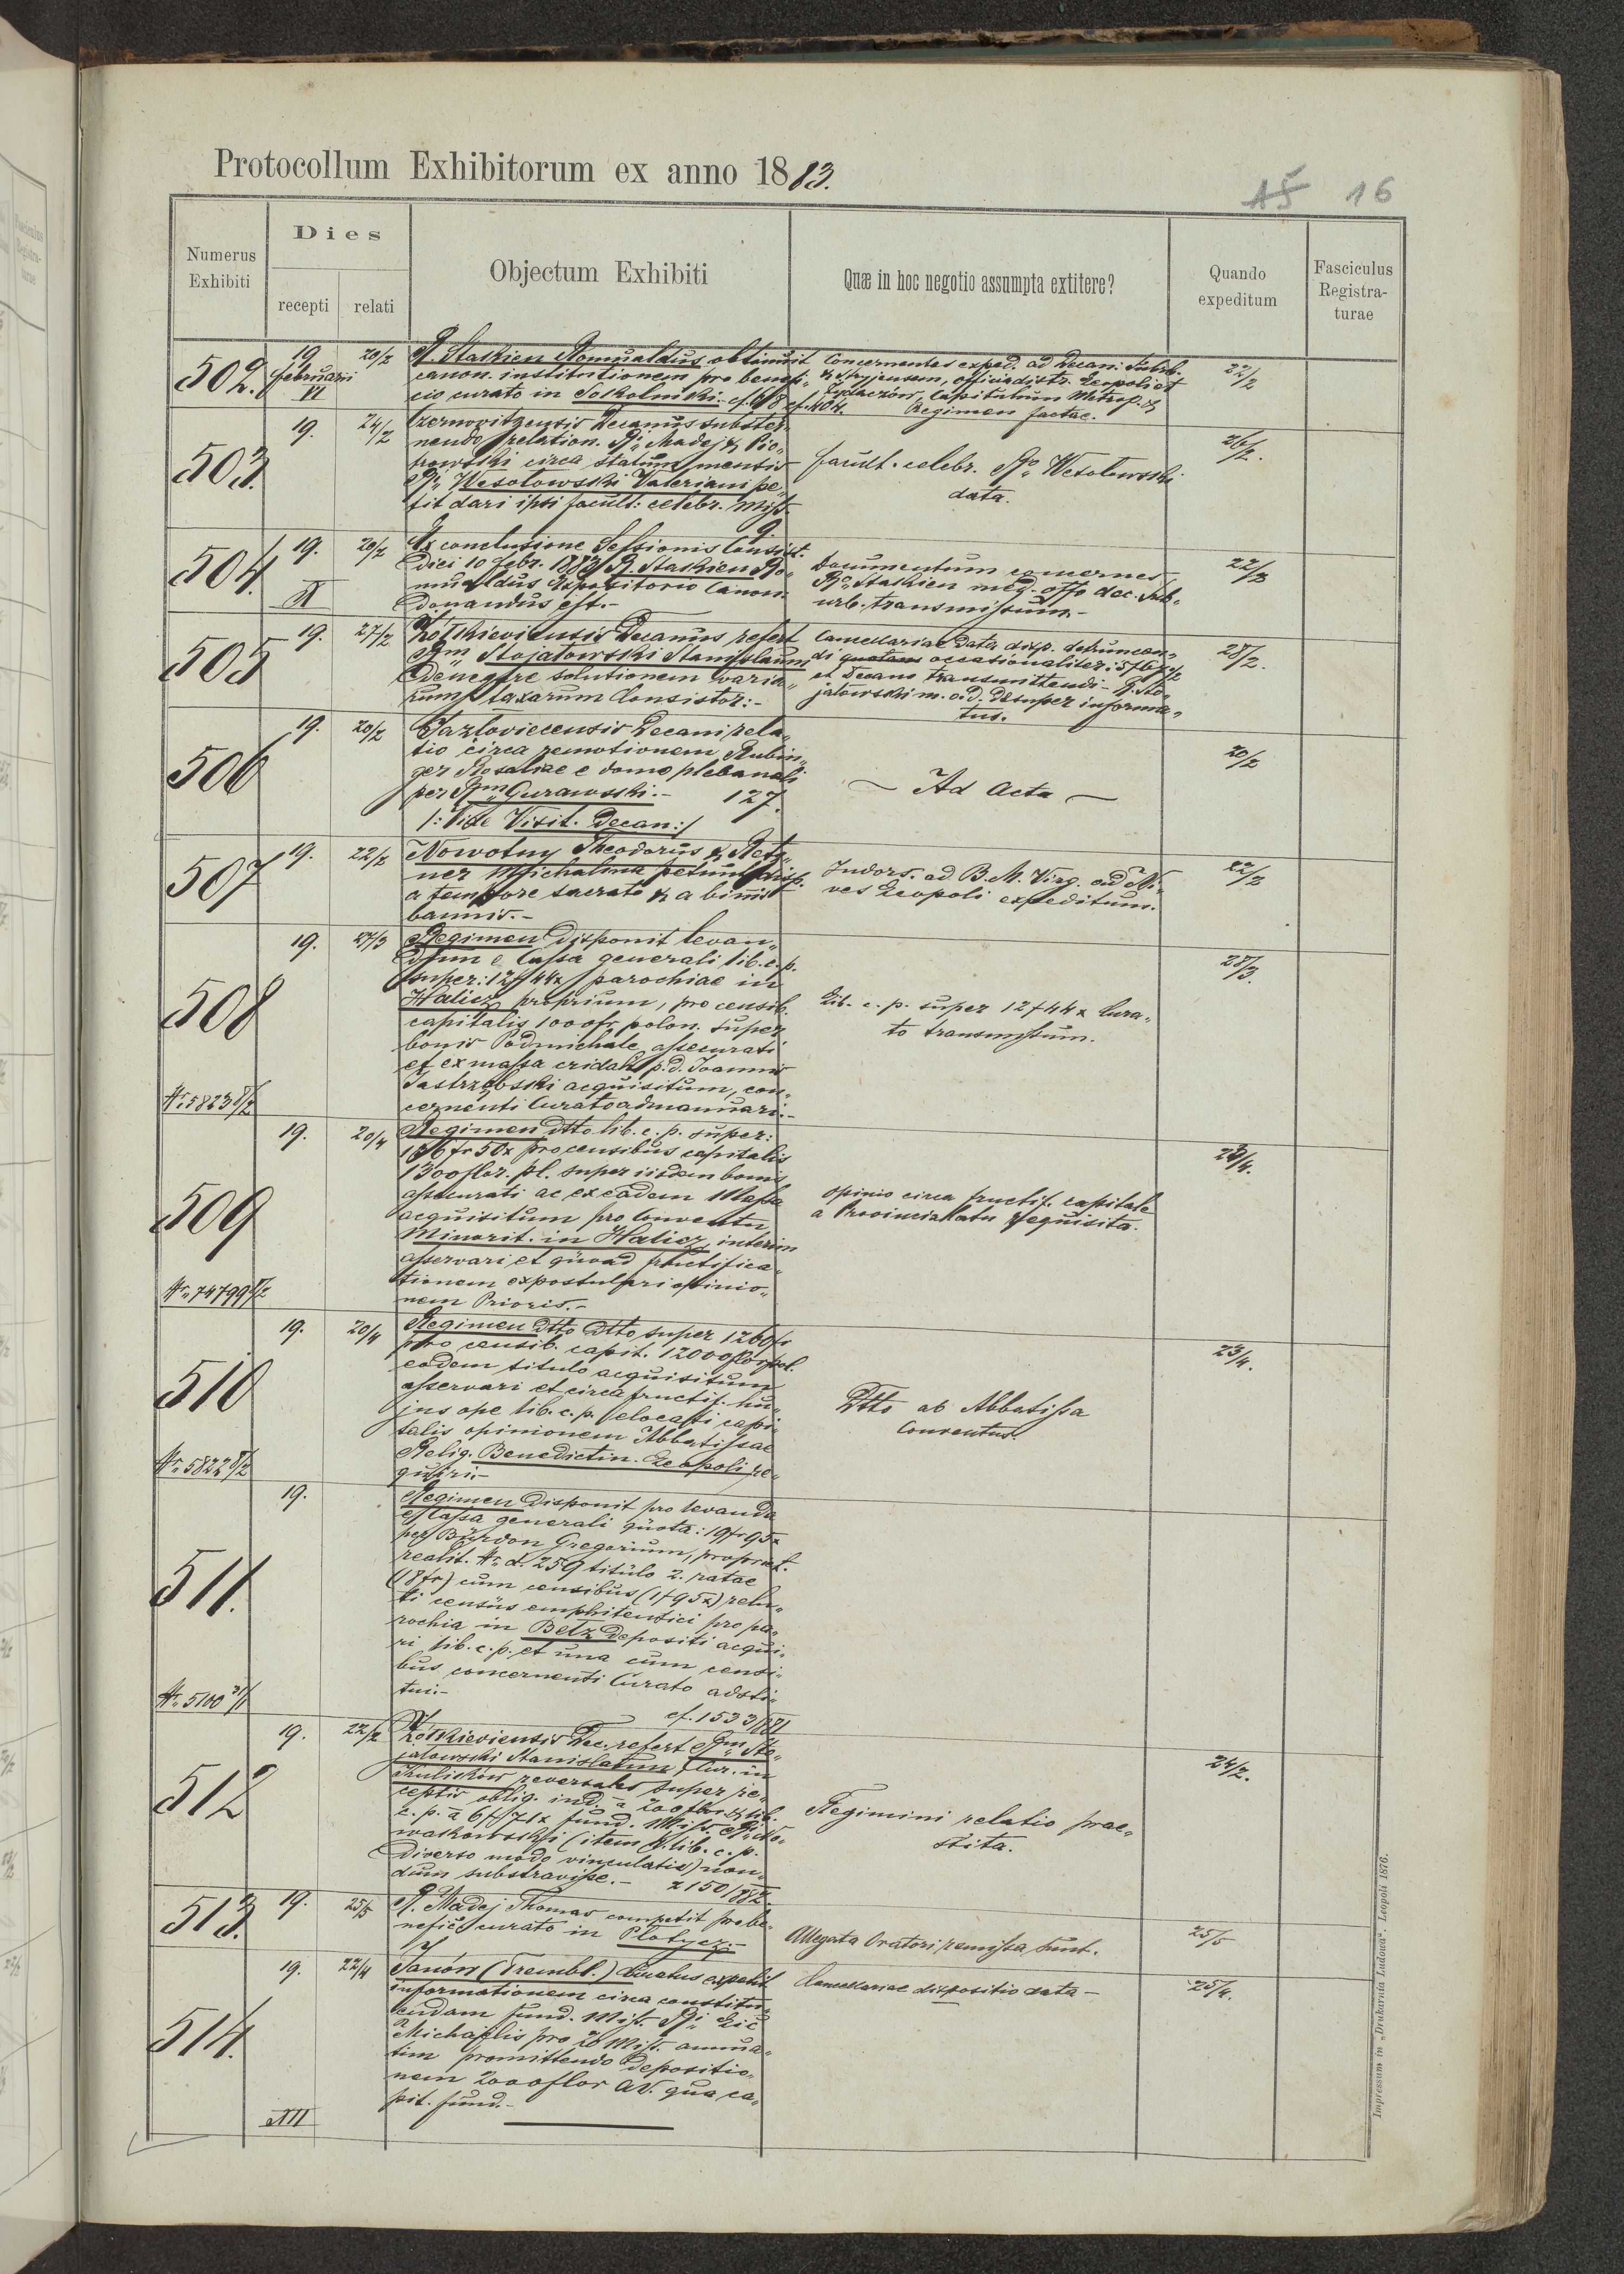 Protocollum Exhibitorum ex anno 1883.
15 16
Numerus Exhibiti
Dies
recepti relati
Objectum Exhibiti
Quæ in hoc negotio assumpta extitere?
Quando expeditum
Fasciculus Registra-
turae
502.
19 februarii VI
20/2
R. Staskien Romualdus obtinuit
canon. institutionem pro benefi„
cio curato in Sokolniki. cf. 404.
Concernentes exped. ad Decan. Suburb.
& Stryjensem, officia distr. Leopoli et
Żydaczów, Capitulum Metrop. &
Regimen factae.
22/2
503.
19.
24/2
Czernovitzensis Decanus subster„
nendo relation. Madej & Pio„
trowski circa statum mentis
Wesołowski Valeriani pe„
tit dari ipsi facult: celebr. Miss.
facult. celebr. Wesołowski
data.
26/2.
504.
19.
X
20/2
Ex conclusione Sessionis Consist.
Diei 10 Febr. 1883 R. Staskien Ro„
mualdus Expositorio Canon.
donandus est.-
Documentum concernes
Staskien med. offo dec. Sub„
urb. transmissum.-
22/2
505
19.
27/2
Żołkieviensis Decanus refert
Stojałowski Stanislaum
denegare solutionem varia„
rum taxarum Consistor:-
Cancellariae data disp. detruncan„
di occasionaliter: 5f67
et Decano transmittendi- R. Sto„
jałowski m. o. d. desuper informa„
tus.
28/2.
506
19.
20/2
Jazłoviecensis Decani rela„
tio circa remotionem Rubin„
ger Rosaliae e domo plebanali
per Gurawski.- 127.
/: Vide Visit. Decan:/
- Ad Acta -
20/2
507
19.
22/2
Nowotny Theodorus &
ner Michalina petunt disp.
a tempore sacrato & a binis
bannis.-
Indors. ad B. M. Virg. ad Ni„
ves Leopoli expeditum.
22/2
508
19.
27/3
Regimen disponit levan„
dum e Cassa generali lib. c. p.
super: 12f44x parochiae in
Halicz proprium, pro censib.
capitalis 1000fr polon. super
bonis Podmichale assecurati
et ex massa cridali p. d. Joannis
Jastrzębski acquisitum, con„
cernenti Curato admanuari.-
Nr. 5823 8/2
Lib. c. p. super 12f44x Cura„
to transmissum.
28/3.
509
19.
20/4
Regimen dtto lib. c. p. super:
pro censibus capitalis
1300flor. pl. super iisdem bonis
assecurati ac ex eadem Massa
acquisitum pro Conventu
Minorit. in Halicz, interim
asservari et quoad fructifica„
tionem expostulari opinio„
nem Prioris.-
opinio circa fructif. capitale
a Provincialatu requisita.
23/4.
510
19.
20/4
Regimen dtto dtto super 1260fr
pro censib. capit. 12000flor pol.
eodem titulo acquisitum
asservari et circa fructif. hu„
jus ope lib. c. p. elocati capi„
talis opinionem Abbatissae
Relig. Benedictin. Leopoli re„
quiri.-
Nr. 5822 8/2
Dtto ab Abbatissa
Conventus.
23/4.
511.
19.
Regimen disponit pro levanda
e Cassa generali quota: 19fr95x
per Burdon Gregorium, propriet.
realit. Nr. d. 259 titulo 2. ratae
(18fr) cum censibus (1f95x) relu„
ti census emphiteutici pro pa„
rochia in Bełz depositi acqui„
ri lib. c. p. et una cum censi„
bus concernenti Curato adsti„
tui.-
cf. 1533/881
Nr. 5100 31/1
512
19.
22/2
Żółkieviensis Dec. refert Sto„
jałowski Stanislaum Cur. in
Kulików reversales super re„
ceptis oblig. ind. a 200flor & lib.
c. p. a fund. Miss. No„
wakowski (item lib. c. p.
diverso modo vinculatis) non„
dum substravisse.- 150/882
Regimini relatio prae„
stita.
24/2.
513.
19.
25/5
R. Madej Thomas competit pro be„
nefic. curato in Płotycz.-
Allegata Oratori remissa sunt.
25/5
514.
19.
22/4
Janów (Trembl.) Curatus expetit
informationem circa constitu„
endam fund. Miss. Lić
Michaelis pro 20 Miss. annua„
tim promittendo depositio„
nem 2000flor AV. qua ca„
pit. fund.-
XII
Cancellariae dispositio data -
25/4.
Impressum in „Drukarnia Ludowa“. Leopoli 1876.